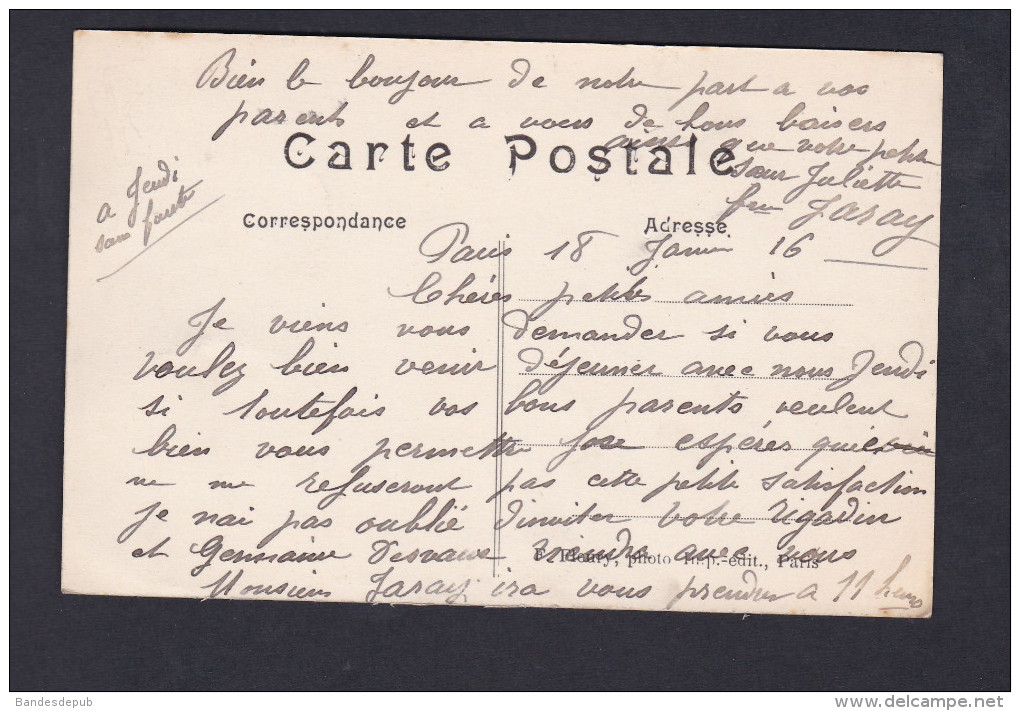 Bien le bonjour de notre part a vos
parents et a vous de bons baisers
ainsi que votre petite
sœur Juliette
Jaray
a Jeudi
sans faute
Carte Postale
Correspondance
Adresse
Paris 18 Janvier 16
Chérès petites amies
Je viens vous demander si vous
voulez bien venir déjeuner avec nous Jeudi
si toutefois vos bons parents veulent
bien vous permettre jose espérer
ne me refuseront pas cette petite satisfaction
Je nai pas oublié dinviter votre Rigadin
et Germaine viendra avec vous
F. Fleury, photo-imp.-édit., Paris
Monsieur Jaray ira vous prendre a 11 heures
Bandesdepub
www.delcampe.net